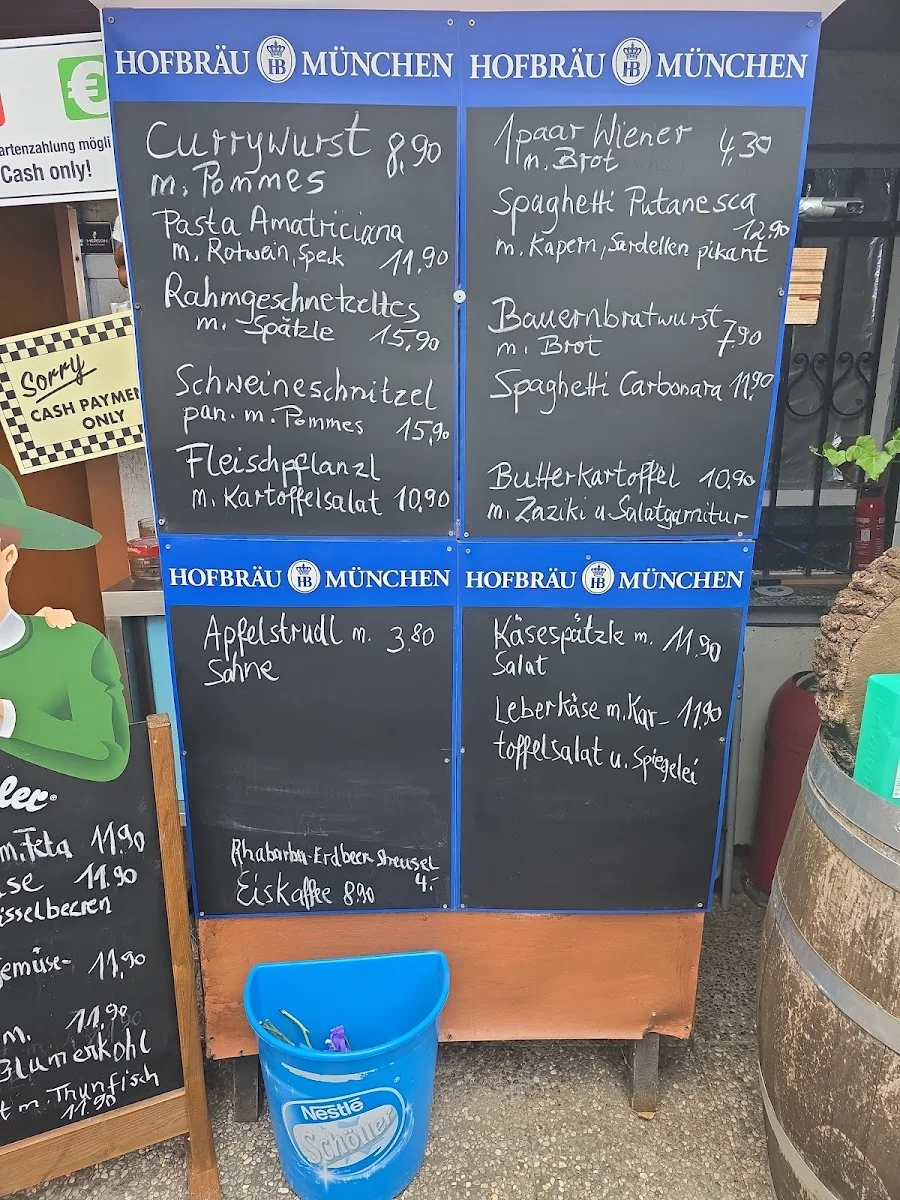 €
artenzahlung mögli
Cash only!
Sorry
CASH PAYMEN
ONLY
HOFBRÄU HB MÜNCHEN
Currywurst 8,90
m. Pommes
Pasta Amatriciana
m. Rotwein, Speck 11,90
Rahmgeschnetzeltes
m. Spätzle 15,90
Schweineschnitzel
pan. m. Pommes 15,90
Fleischpflanzl
m. Kartoffelsalat 10,90
HOFBRÄU HB MÜNCHEN
1 paar Wiener 4,30
m. Brot
Spaghetti Putanesca
12,90
m. Kapern, Sardellen pikant
Bauernbratwurst
m. Brot 7,90
Spaghetti Carbonara 11,90
Butterkartoffel 10,90
m. Zaziki u Salatgarnitur
HOFBRÄU HB MÜNCHEN
Apfelstrudl m. 3,80
Sahne
Rhabarba-Erdbeer Streusel
4.-
Eiskaffee 8,90
HOFBRÄU HB MÜNCHEN
Käsespätzle m. 11,90
Salat
Leberkäse m. Kar- 11,90
toffelsalat u. Spiegelei
ler
m. Feta 11,90
se 11.90
isselbeeren
Gemüse- 11,90
m. 11,90
Blumenkohl
t m. Thunfisch
11.90
Nestlé
Schöller